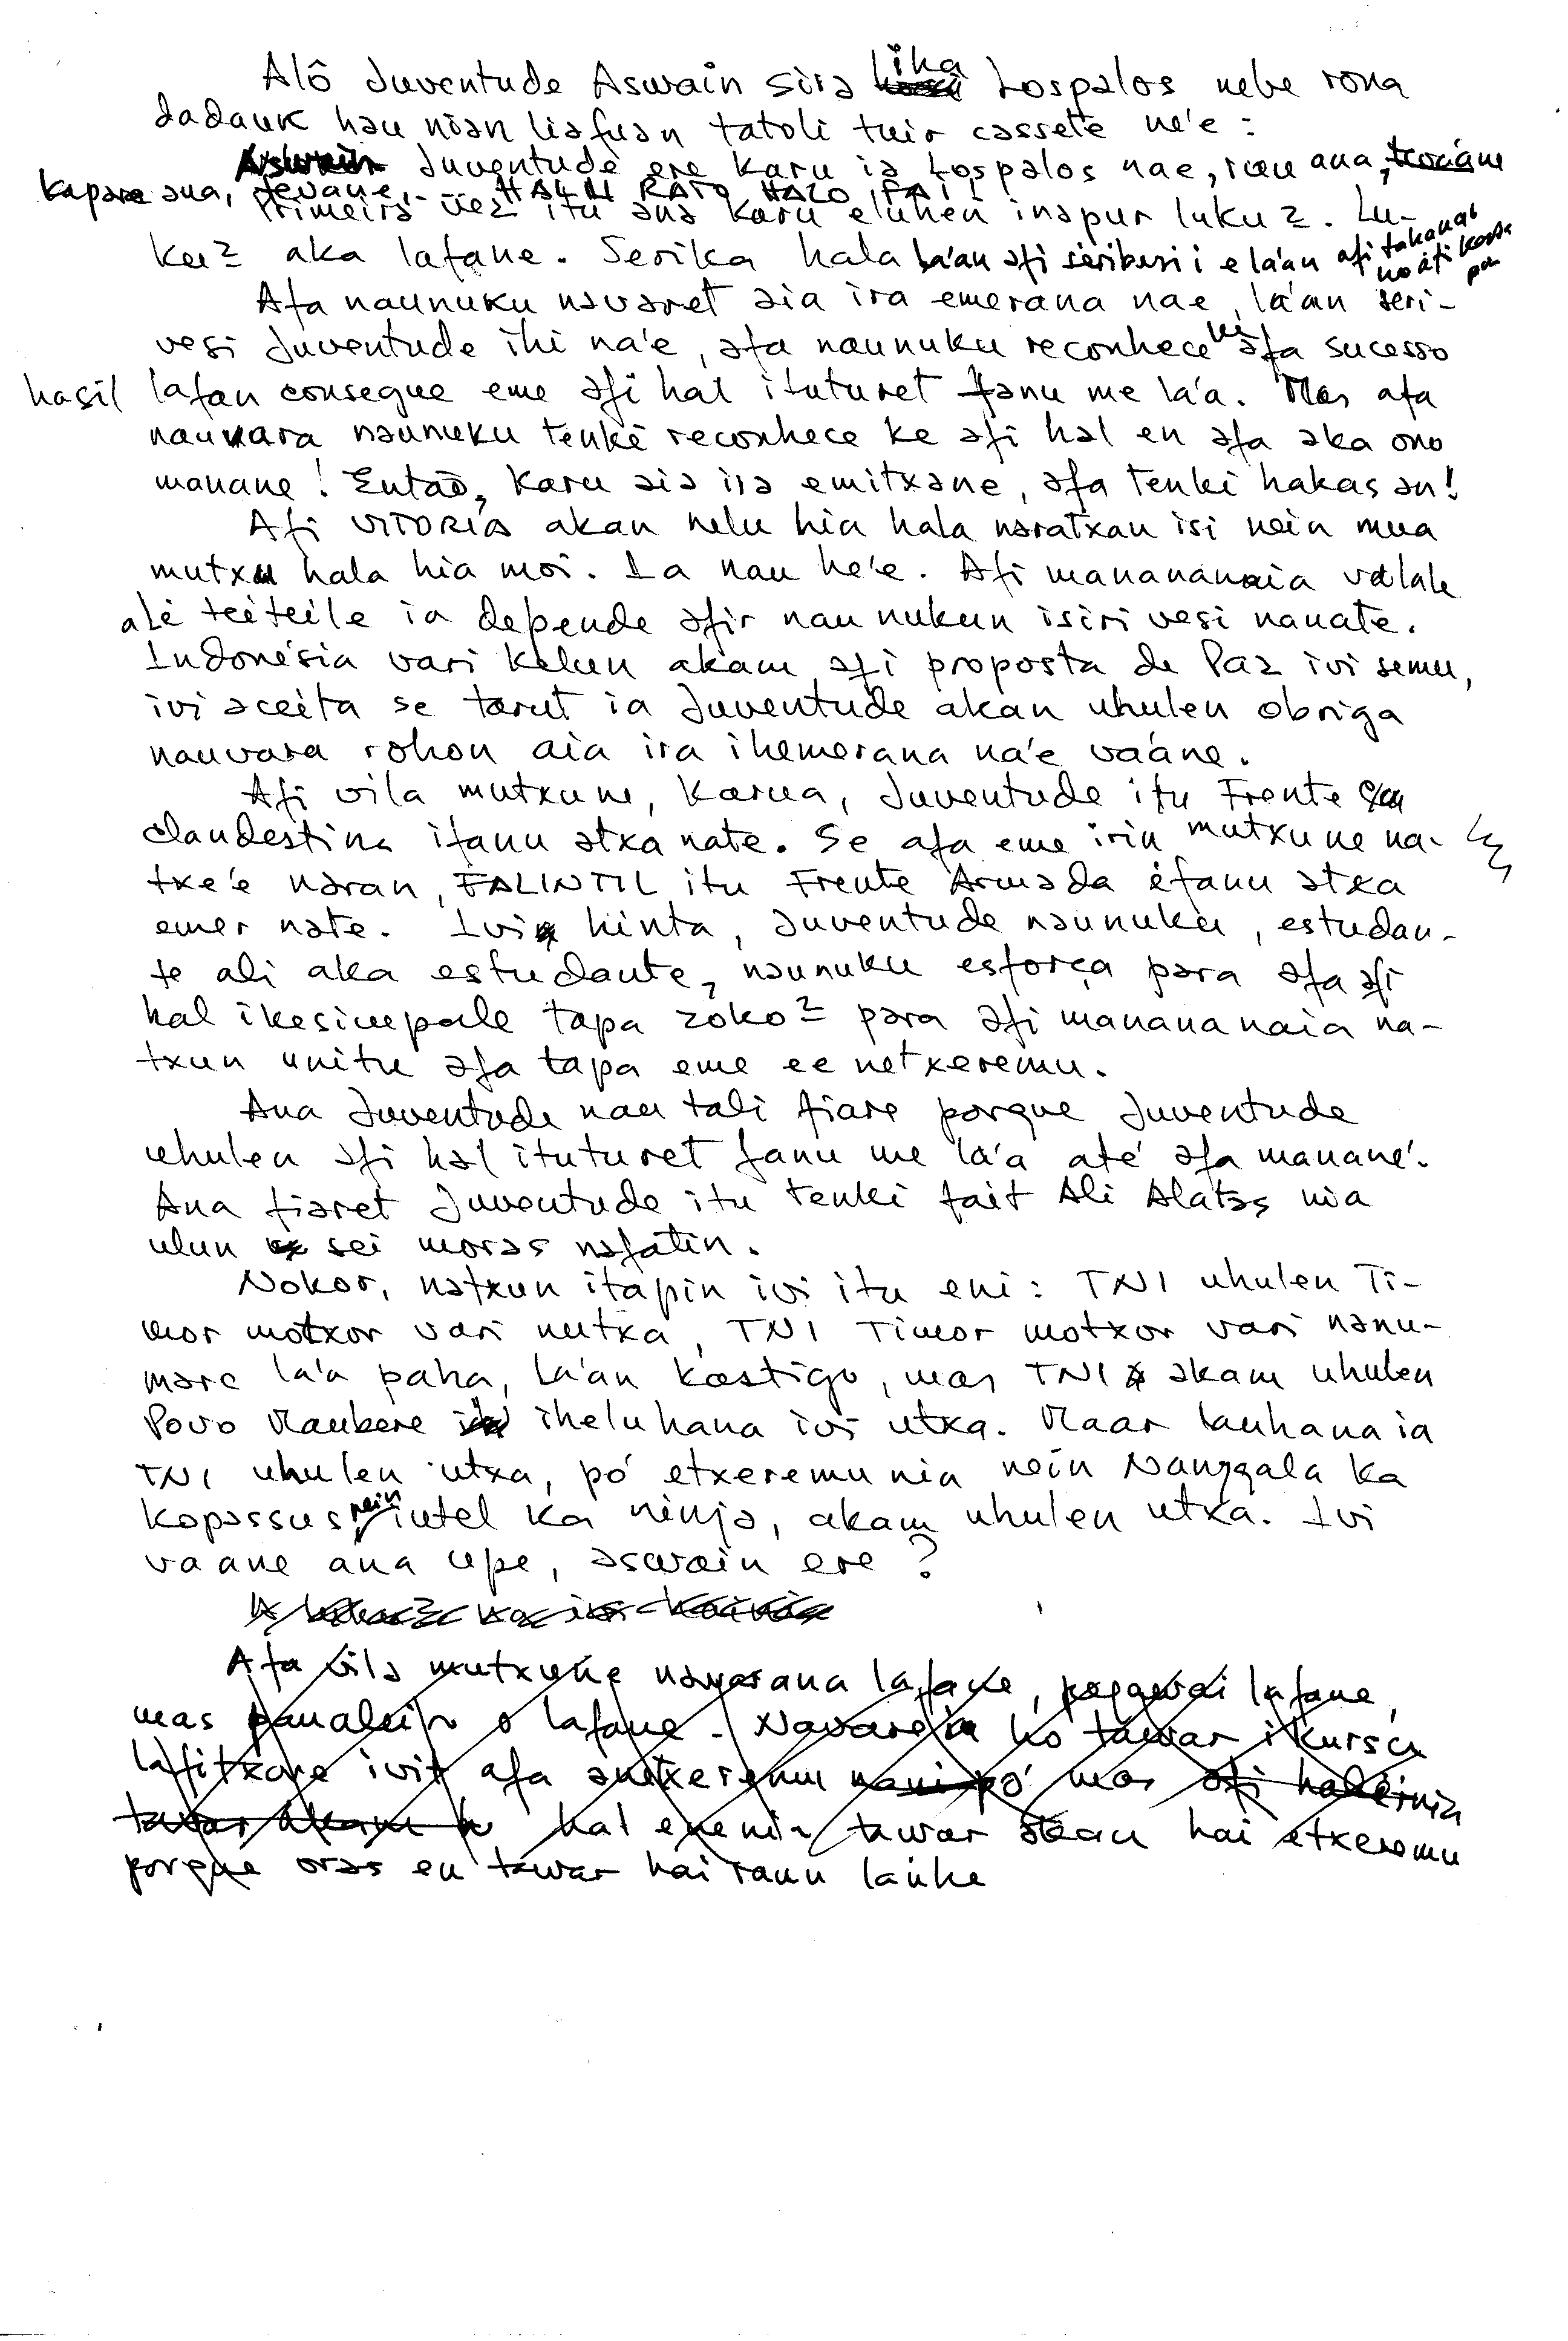 Alô Juventude Aswain sira iha Lospalos nebe rona
dadauk hau nian liafuan tatoli tuir cassete ne'e:
Juventude ere karu ia Lospalos nae, rau ana,
kapare ana, tevane, - HALU RATO HALO FAI
Primeira vez itu ana karu eluhen inapur luku2. Lu-
ku2 aka lafane. Serika hala la'an afi seribesi i e la'an afi takanat
no afi kosta
pa
Afa naunuku navaret aia ira emerana nae, la'an seri-
vesi Juventude ihi na'e, afa naunuku reconhece ke afa sucesso
hasil lafan consegue eme afi hal ituturet fanu me la'a. Mas afa
nauvara naunuku tenke reconhece ke afi hal en afa aka ono
manane! Entaõ, karu aia ira emitxane, afa tenki hakasan!
Afi VITORIA akan nelu hia hala naratxan isi nein mua
mutxu hala hia moi. Ia nau he'e. Afi manananaia valale
ale teiteile ia depende afir nau nukun isiri vesi nanate.
Indonésia vari kelun akam afi proposta de Paz ivi semu,
ivi aceita se tarut ia Juventude akan uhulen obriga
nauvara rohon aia ira ihemerana na'e vaáne.
Afi vila mutxune, karua, Juventude itu Frente
clandestina ifanu atxa nate. Se afa eme irin mutxune na-
txe'e naran, FALINTIL itu Frente Armada éfanu atxa
emer nate. Ivi hinta, Juventude naunuku, estudan-
te ali aka estudante, naunuku esforça para afa afi
hal ikesimpale tapa zoko2 para afi manananaia na-
txun unitu afa tapa eme ee netxeremu.
Ana Juventude nau tali fiare porque Juventude
uhulen afi hal ituturet fanu me la'a até afa manané.
Ana fiaret Juventude itu tenki fait Ali Alatas nia
ulun sei moras nafatin.
Nokor, natxun itapin ivi itu eni: TNI uhulen Ti-
mor motxor vari nutxa, TNI Timor motxor vari nanu-
mare la'a paha, la'an kastigo, mas TNI akam uhulen
Povo Maubere iheluhana ivi utxa. Maar lauhana ia
TNI uhulen utxa, pó etxeremu nia nein Nanggala ka
kopassus, nein intel ka ninja, akam uhulen utxa. Ivi
vaane ana upe, aswain ere?
Afa vila mutxune navarana lafane, pegawai lafane,
mas panaleir o lafane. Navare ia ko tawar i kursu
lafitxane ivit afa anetxeremu mas
hal ene nia tawar akan hai etxeremu
porque oras en tawar hai rauu lauhe